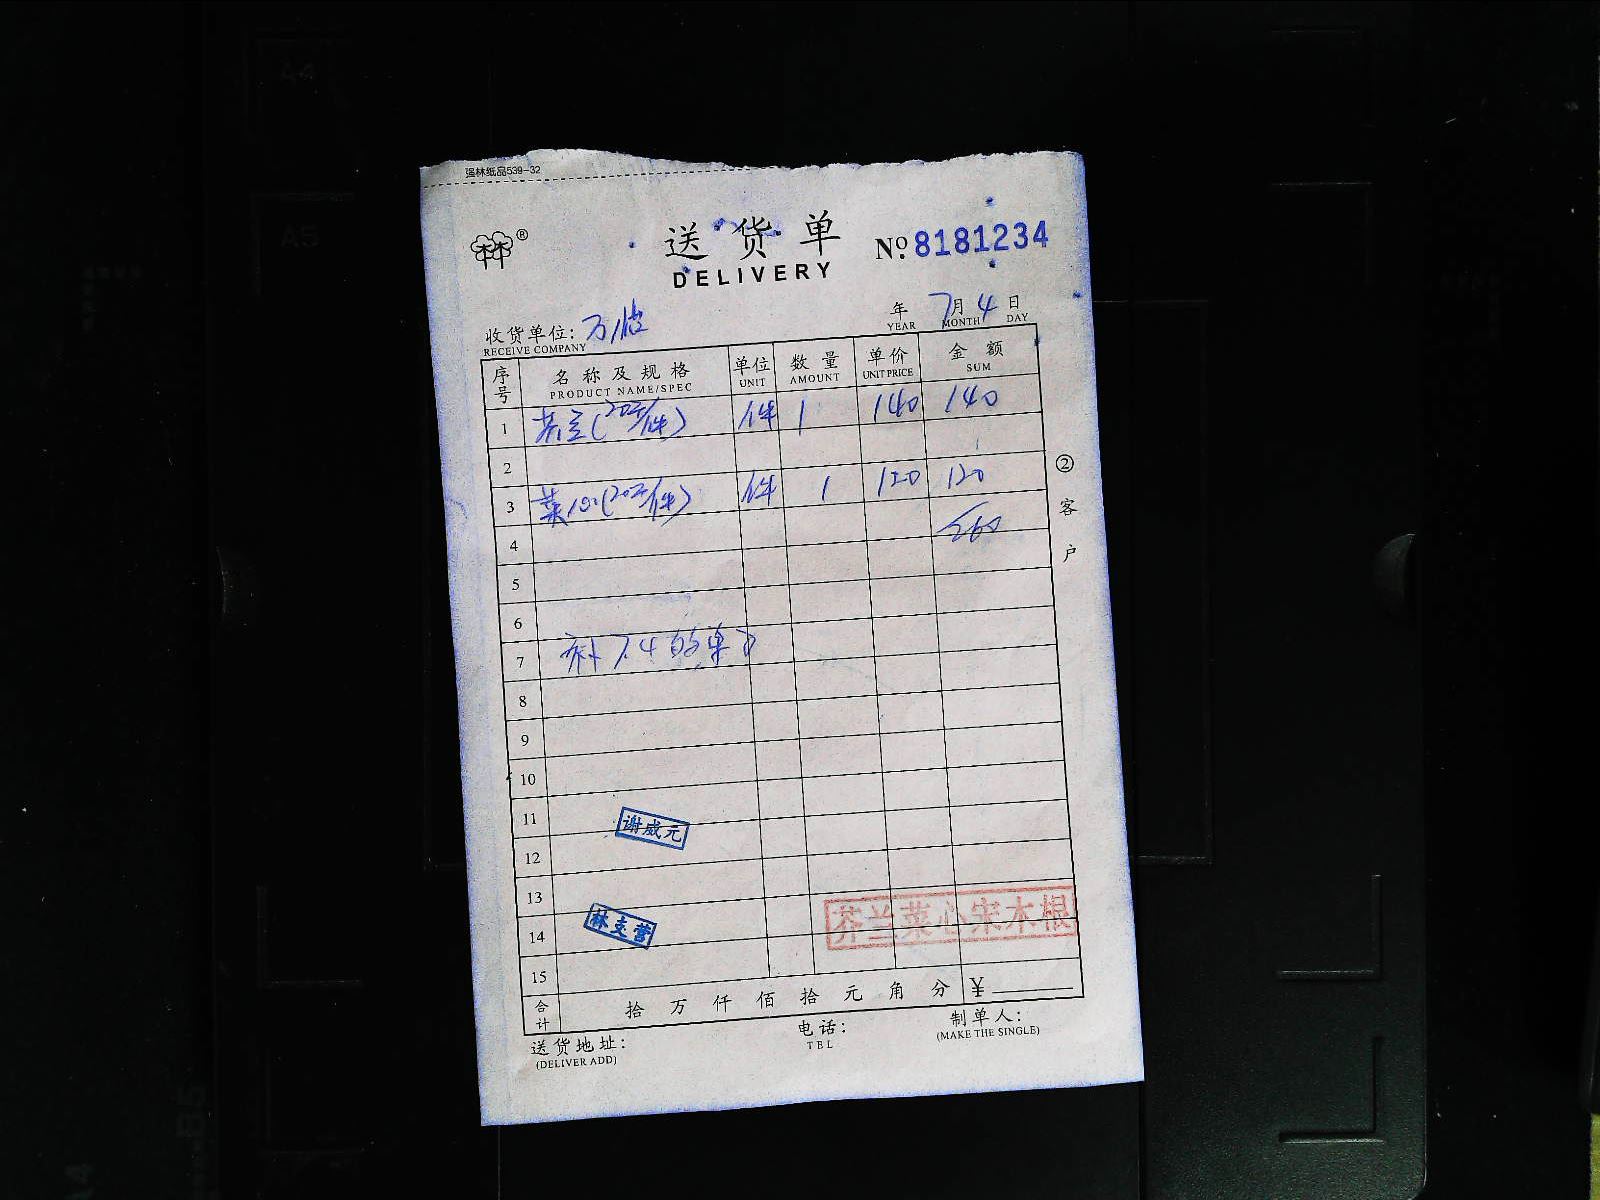 强林纸品539-32
林林®
送货单
DELIVERY
№: 8181234
收货单位:
RECEIVE COMPANY
年 7月 4日
YEAR MONTH DAY
序号 名称及规格 单位 数量 单价 金额
PRODUCT NAME/SPEC UNIT AMOUNT UNIT PRICE SUM
1 芥兰(20元/件) 件 1 140 140
2
3 菜心(20元/件) 件 1 120 120
4 260
5
6
7 补7.4的单
8
9
10
11 谢威元
12
13
14 林支营 芥兰菜心宋木根
15
合计 拾万仟佰拾元角分 ¥
送货地址: 电话: 制单人:
(DELIVER ADD) TEL (MAKE THE SINGLE)
②客户
A4
A5